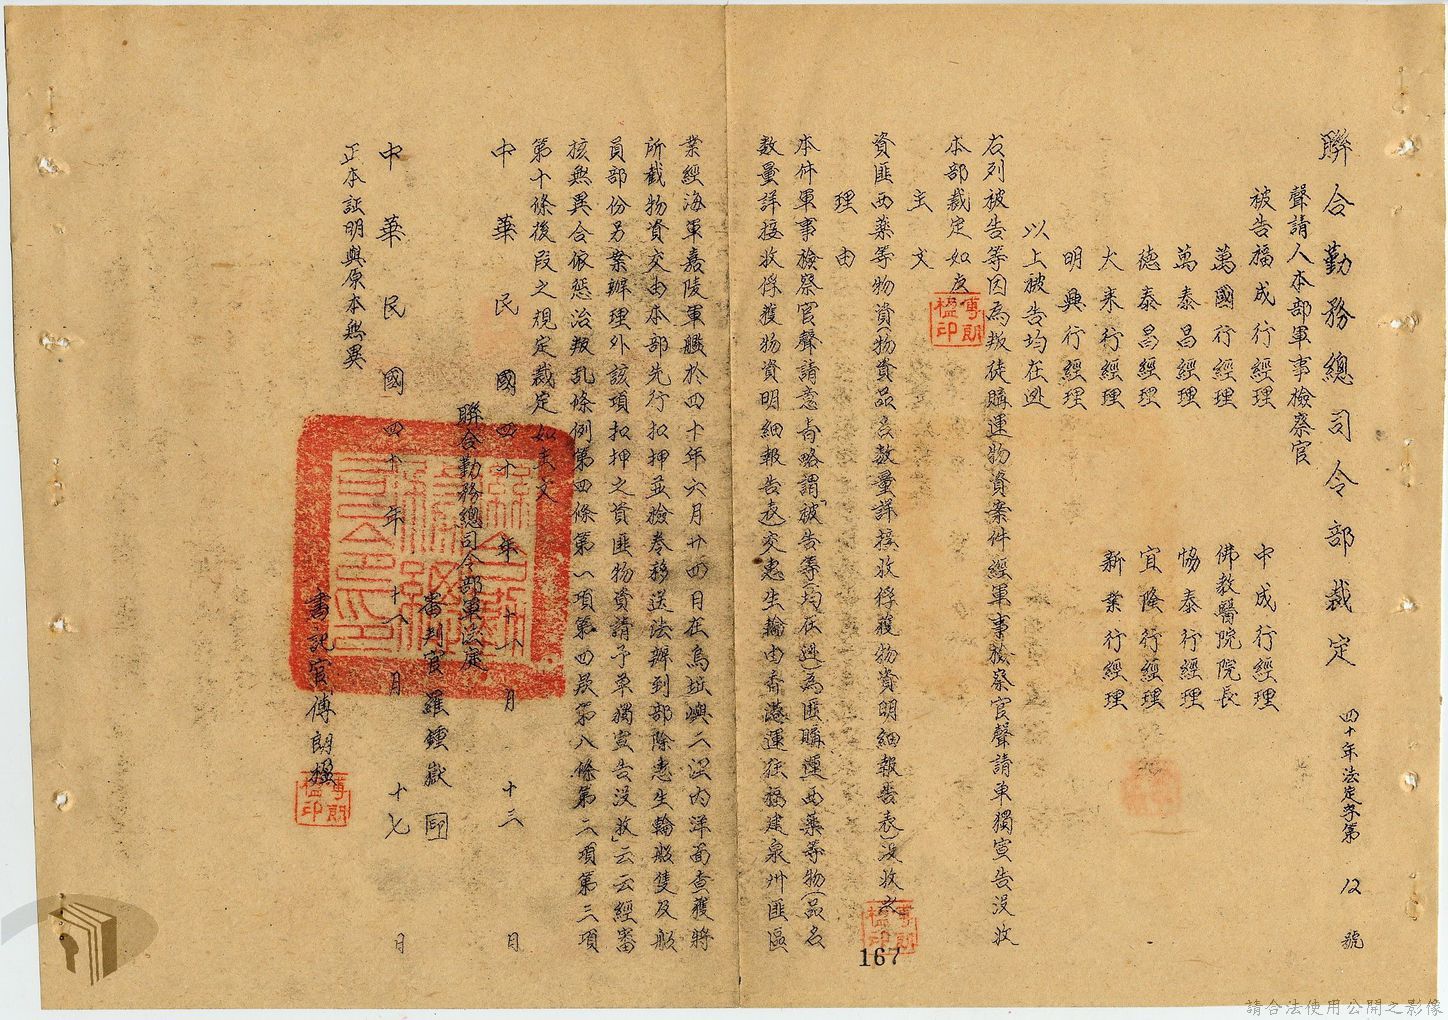 聯合勤務總司令部裁定 四十年法定字第12號
聲請人本部軍事檢察官
被告福成行經理 中成行經理
萬國行經理 佛教醫院院長
萬泰昌經理 協泰行經理
德泰昌經理 宜隆行經理
大來行經理 新業行經理
明興行經理
以上被告均在逃
右列被告等因為叛徒購運物資案件經軍事檢察官聲請單獨宣告沒收
本部裁定如左
主文
資匪西藥等物資(物資品名數量詳接收俘獲物資明細報告表)沒收之
理由
本件軍事檢察官聲請意旨略謂「被告等(均在逃)為匪購運西藥等物(品名
數量詳接收俘獲物資明細報告表)交惠生輪由香港運往福建泉州匪區
業經海軍嘉陵軍艦於四十年六月廿四日在烏坵嶼二浬内洋面查獲將
所截物資交由本部先行扣押並檢卷移送法辦到部除惠生輪船隻及船
員部份另案辦理外該項扣押之資匪物資請予單獨宣告沒收」云云經審
核無異合依懲治叛乱條例第四條第一項第四款第八條第二項第三項
第十條後段之規定裁定如主文
中華民國四十年十一月十三日
聯合勤務總司令部軍法處
審判官羅鍾嶽 印
中華民國四十年十八月十七日
正本証明與原本無異
書記官傅朗楹
傅朗楹印
傅朗楹印
傅朗楹印
167
請合法使用公開之影像